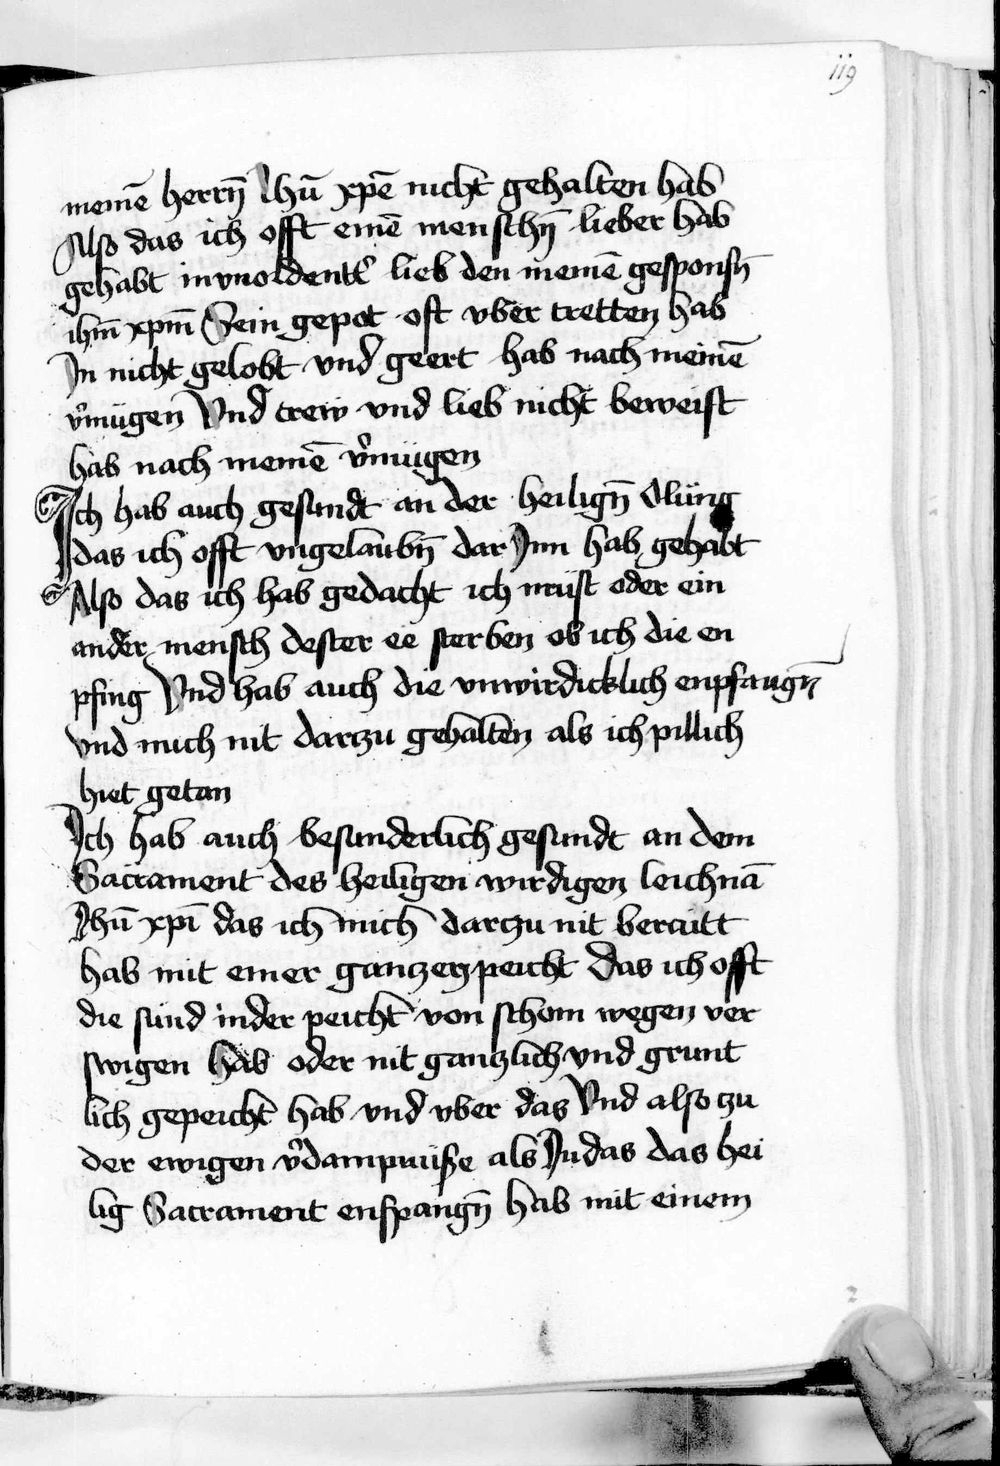 119
meinē herrn̄ Jhū xpē nicht gehalten hab
Also das ich offt einē menschn̄ lieber hab
gehabt in vnordentlʼ lieb den meinē gesponsn̄
ihm̄ xpm̄ Sein gepot oft vber tretten hab
In nicht gelobt vnd geert hab nach meinē
vʼmügen Vnd trew vnd lieb nicht beweist
hab nach meinē vʼmügen
Ich hab auch gesundt an der heilign̄ Olung
das ich offt vngelaubn̄ dar Jnn hab gehabt
Also das ich hab gedacht ich müst oder ein
ander mensch dester ee sterben ob ich die en
pfing Vnd hab auch die vnwirdicklich enpfangn̄
vnd mich nit darczu gehalten als ich pillich
hiet getan
Ich hab auch besunderlich gesundt an dem
Sacrament des heiligen wirdigen leichnā
Jhū xpī das ich mich darczu nit beraitt
hab mit einer ganczen peicht Das ich offt
die sünd in der peicht von schom wegen ver
swigen hab oder nit ganczlich vnd grunt
lich gepeicht hab vnd vber das Vnd also zu
der ewigen vʼdampnüsse als Judas das hei
lig Sacrament enfpangn̄ hab mit einem